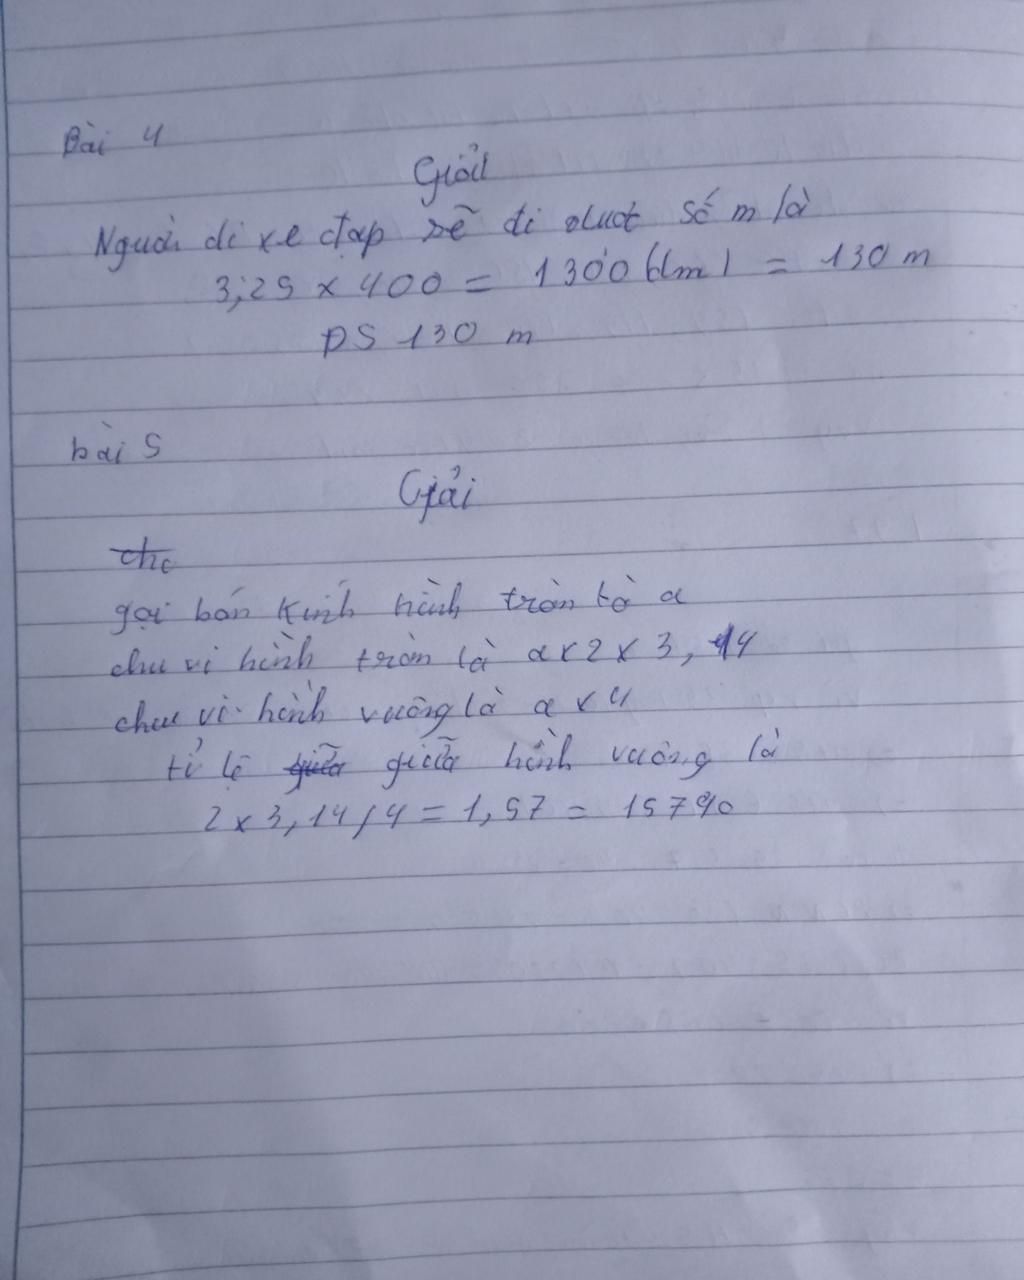 Bài 4
Giải
Người di xe đạp sẽ đi được số m là
3,25 x 400 = 1300 (dm) = 130 m
DS 130 m
bài 5
Giải
cho
gọi bán kính hình tròn là a
chu vi hình tròn là a x 2 x 3,14
chu vi hình vuông là a x 4
tỉ lệ giữa giữa hình vuông là
2 x 3,14 / 4 = 1,57 = 157%